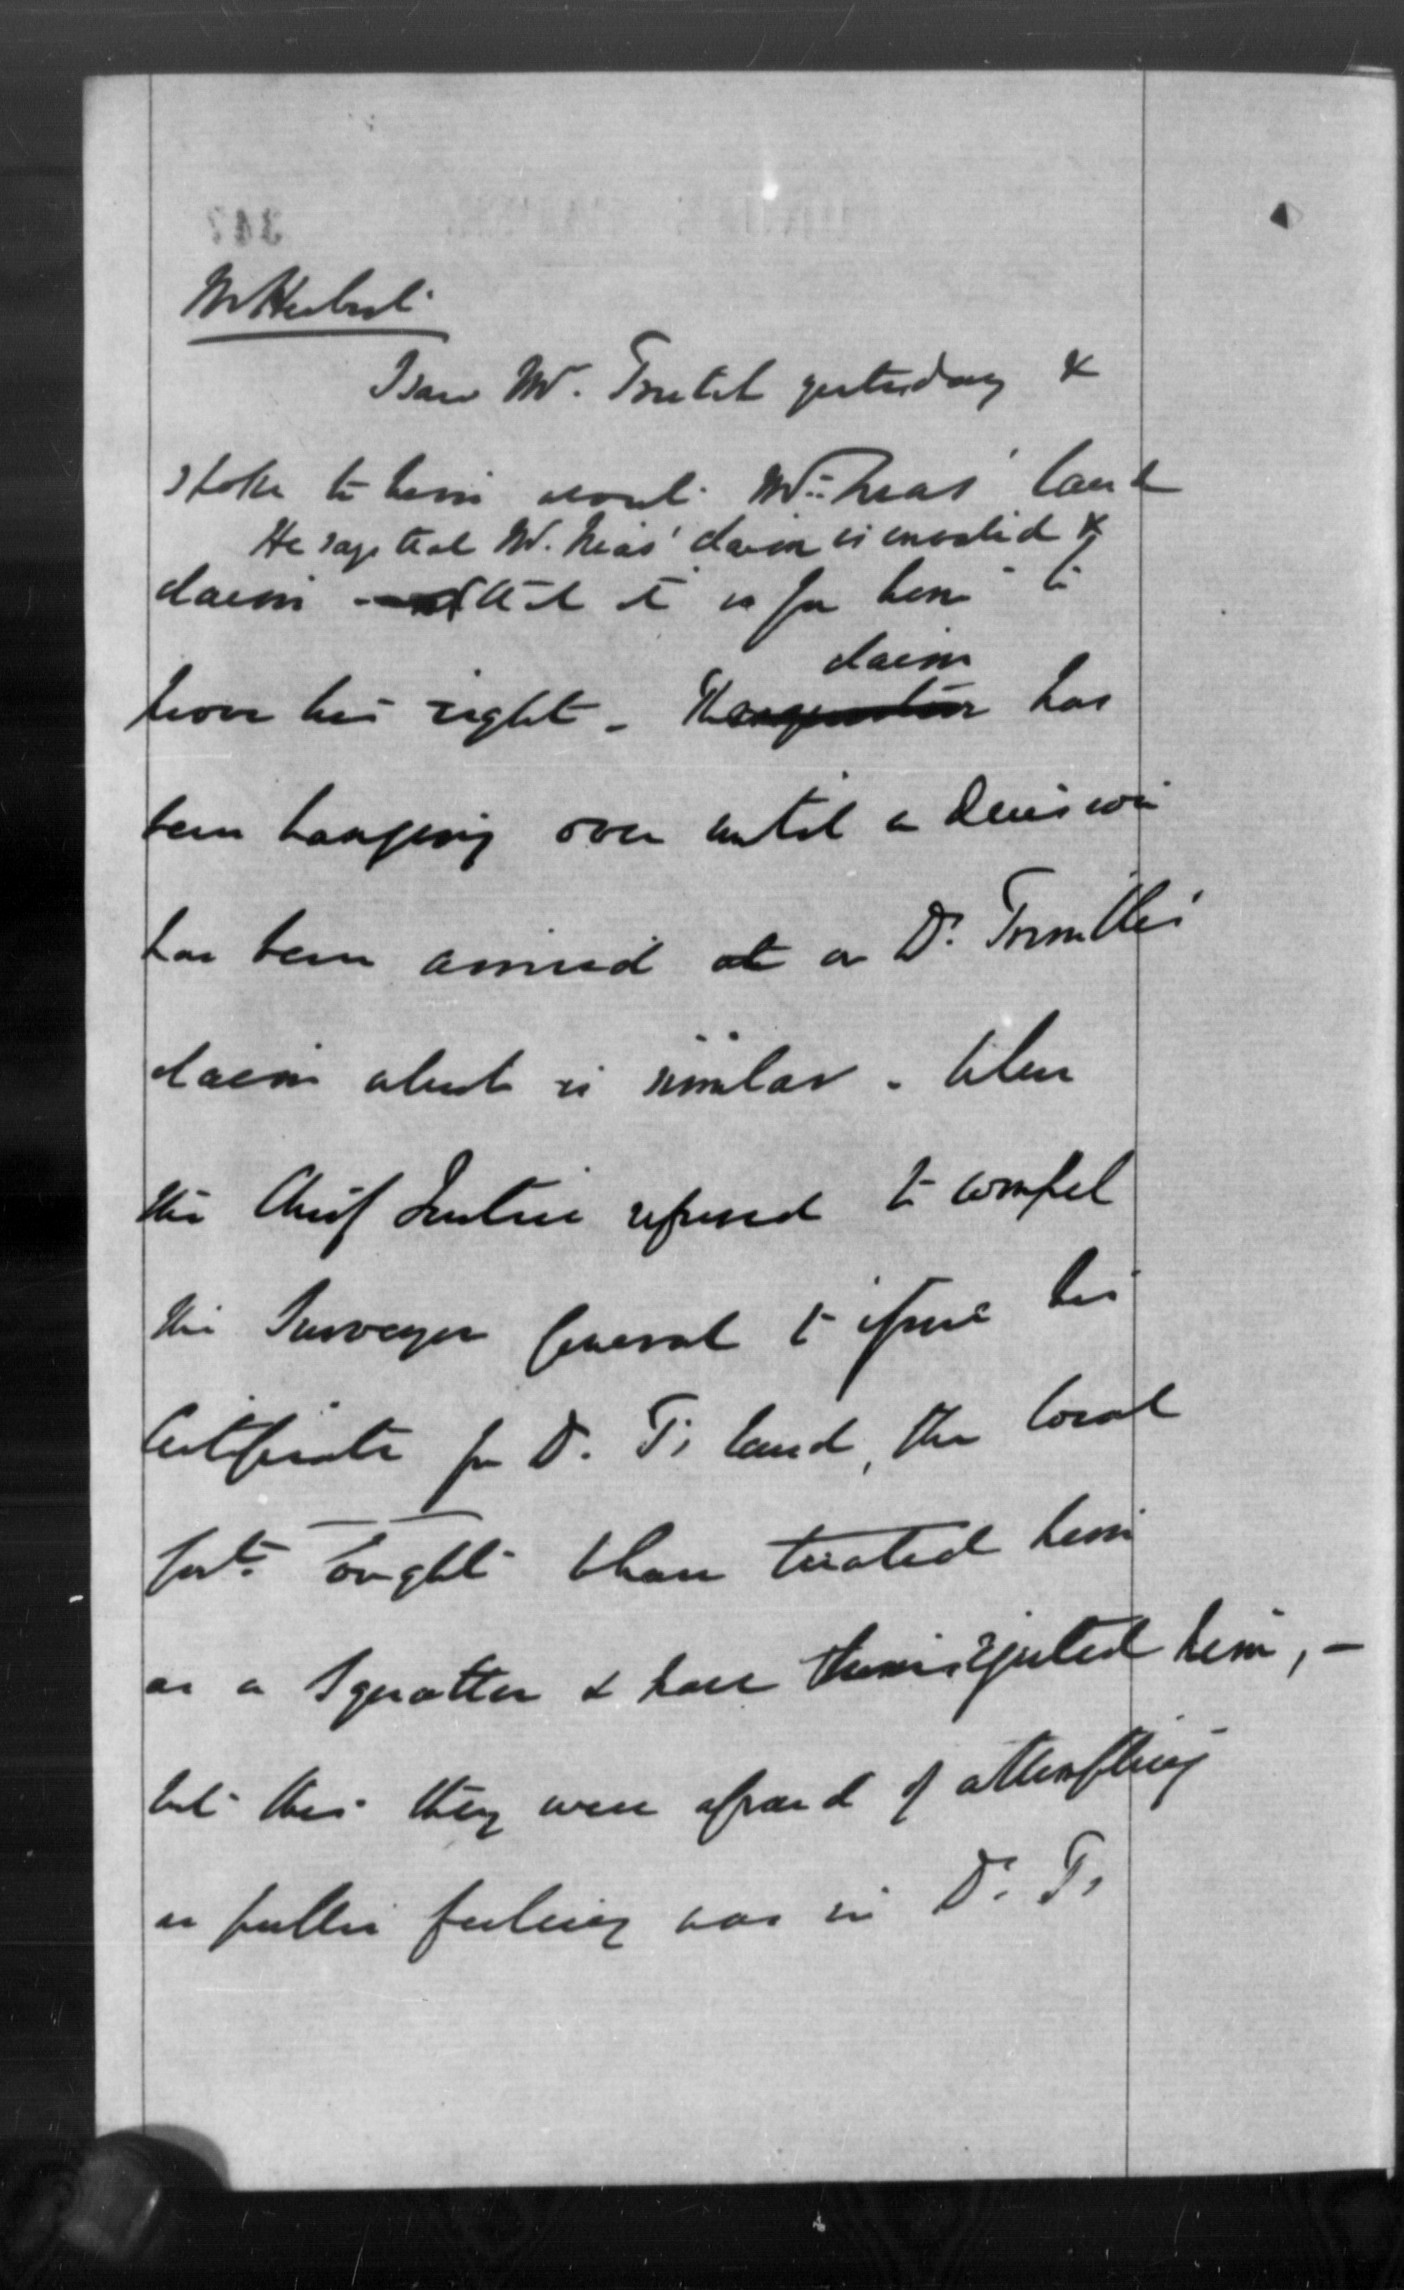 Mr Herbert
I saw Mr. Trutch yesterday &
spoke to him about Mr. Nias' land
He says that Mr. Nias' claim is invalid &
claim - that it is for him to
prove his right - The claim
question has
been hanging over until a decision
has been arrived at on Dr. Trimble's
claim which is similar. When
the Chief Justice refused to compel
the Surveyor General to issue his
Certificate for D. T's land, the local
Govt. ought to have treated him
as a Squatter & have ejected him, -
but this they were afraid of attempting
as public feeling was in Dr. T's